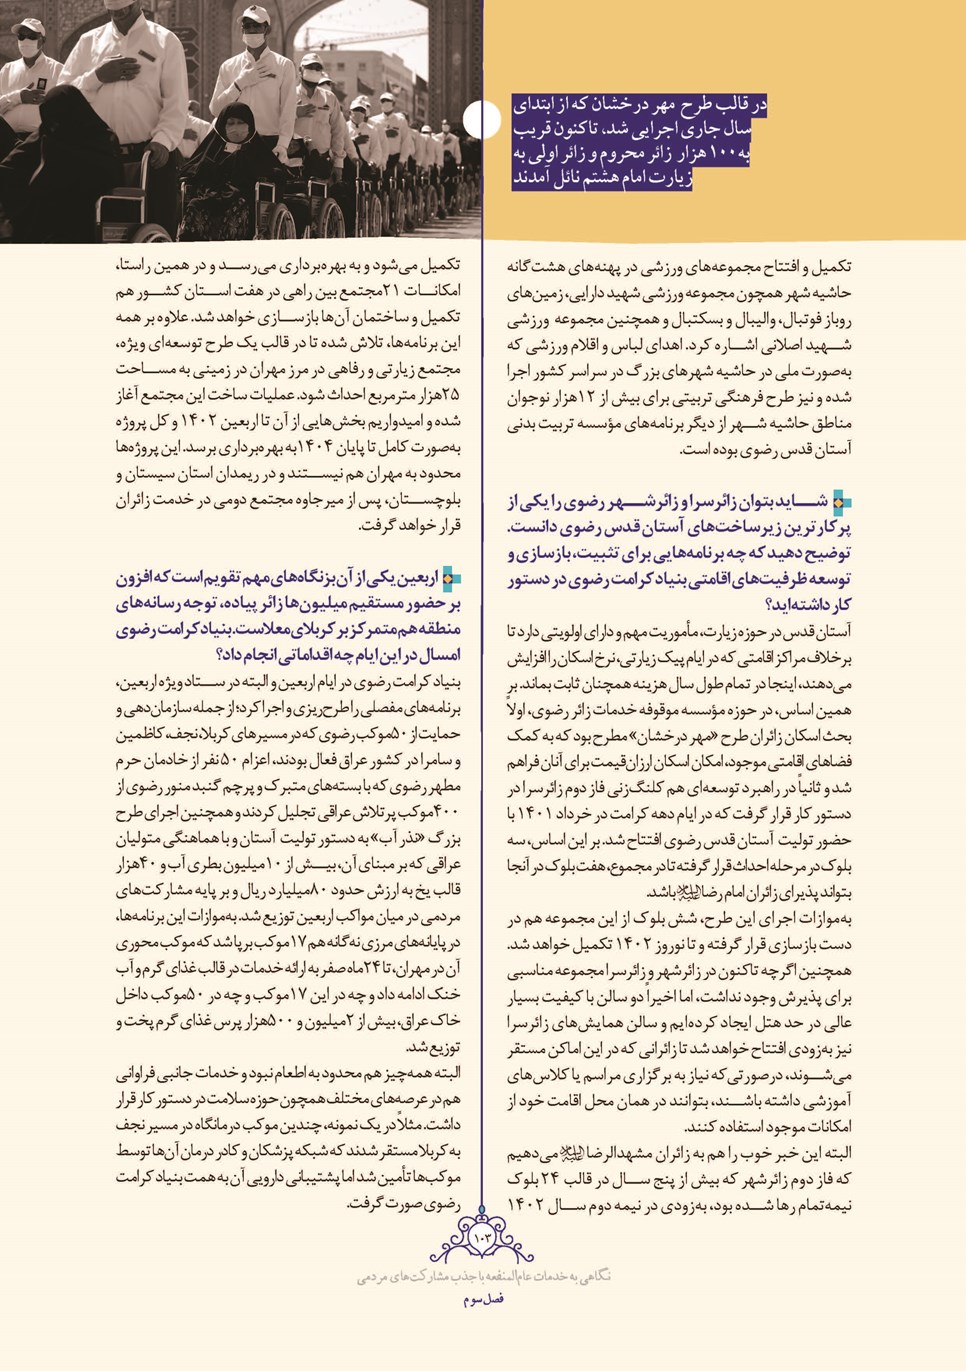 در قالب طرح مهر درخشان که از ابتدای
سال جاری اجرایی شد، تاکنون قریب
به ۱۰۰ هزار زائر محروم و زائر اولی به
زیارت امام هشتم نائل آمدند
تکمیل و افتتاح مجموعه‌های ورزشی در پهنه‌های هشت‌گانه
حاشیه شهر همچون مجموعه ورزشی شهید دارایی، زمین‌های
روباز فوتبال، والیبال و بسکتبال و همچنین مجموعه ورزشی
شهید اصلانی اشاره کرد. اهدای لباس و اقلام ورزشی که
به‌صورت ملی در حاشیه شهرهای بزرگ در سراسر کشور اجرا
شده و نیز طرح فرهنگی تربیتی برای بیش از ۱۲هزار نوجوان
مناطق حاشیه شهر از دیگر برنامه‌های مؤسسه تربیت بدنی
آستان قدس رضوی بوده است.
شاید بتوان زائرسرا و زائرشهر رضوی را یکی از
پرکارترین زیرساخت‌های آستان قدس رضوی دانست.
توضیح دهید که چه برنامه‌هایی برای تثبیت، بازسازی و
توسعه ظرفیت‌های اقامتی بنیاد کرامت رضوی در دستور
کار داشته‌اید؟
آستان قدس در حوزه زیارت، مأموریت مهم و دارای اولویتی دارد تا
برخلاف مراکز اقامتی که در ایام پیک زیارتی، نرخ اسکان را افزایش
می‌دهند، اینجا در تمام طول سال هزینه همچنان ثابت بماند. بر
همین اساس، در حوزه مؤسسه موقوفه خدمات زائر رضوی، اولاً
بحث اسکان زائران طرح «مهر درخشان» مطرح بود که به کمک
فضاهای اقامتی موجود، امکان اسکان ارزان‌قیمت برای آنان فراهم
شد و ثانیاً در راهبرد توسعه‌ای هم کلنگ‌زنی فاز دوم زائرسرا در
دستور کار قرار گرفت که در ایام دهه کرامت در خرداد ۱۴۰۱ با
حضور تولیت آستان قدس رضوی افتتاح شد. بر این اساس، سه
بلوک در مرحله احداث قرار گرفته تا در مجموع، هفت بلوک در آنجا
بتواند پذیرای زائران امام رضا باشد.
به‌موازات اجرای این طرح، شش بلوک از این مجموعه هم در
دست بازسازی قرار گرفته و تا نوروز ۱۴۰۲ تکمیل خواهد شد.
همچنین اگرچه تاکنون در زائرشهر و زائرسرا مجموعه مناسبی
برای پذیرش وجود نداشت، اما اخیراً دو سالن با کیفیت بسیار
عالی در حد هتل ایجاد کرده‌ایم و سالن همایش‌های زائرسرا
نیز به‌زودی افتتاح خواهد شد تا زائرانی که در این اماکن مستقر
می‌شوند، درصورتی‌که نیاز به برگزاری مراسم یا کلاس‌های
آموزشی داشته باشند، بتوانند در همان محل اقامت خود از
امکانات موجود استفاده کنند.
البته این خبر خوب را هم به زائران مشهدالرضا می‌دهیم
که فاز دوم زائرشهر که بیش از پنج سال در قالب ۲۴ بلوک
نیمه‌تمام رها شده بود، به‌زودی در نیمه دوم سال ۱۴۰۲
تکمیل می‌شود و به بهره‌برداری می‌رسد و در همین راستا،
امکانات ۲۱مجتمع بین راهی در هفت استان کشور هم
تکمیل و ساختمان آن‌ها بازسازی خواهد شد. علاوه بر همه
این برنامه‌ها، تلاش شده تا در قالب یک طرح توسعه‌ای ویژه،
مجتمع زیارتی و رفاهی در مرز مهران در زمینی به مساحت
۲۵هزار مترمربع احداث شود. عملیات ساخت این مجتمع آغاز
شده و امیدواریم بخش‌هایی از آن تا اربعین ۱۴۰۲ و کل پروژه
به‌صورت کامل تا پایان ۱۴۰۴به بهره‌برداری برسد. این پروژه‌ها
محدود به مهران هم نیستند و در ریمدان استان سیستان و
بلوچستان، پس از میرجاوه مجتمع دومی در خدمت زائران
قرار خواهد گرفت.
اربعین یکی از آن بزنگاه‌های مهم تقویم است که افزون
بر حضور مستقیم میلیون‌ها زائر پیاده، توجه رسانه‌های
منطقه هم متمرکز بر کربلای معلاست. بنیاد کرامت رضوی
امسال در این ایام چه اقداماتی انجام داد؟
بنیاد کرامت رضوی در ایام اربعین و البته در ستاد ویژه اربعین،
برنامه‌های مفصلی را طرح‌ریزی و اجرا کرد؛ از جمله سازمان‌دهی و
حمایت از ۵۰موکب رضوی که در مسیرهای کربلا، نجف، کاظمین
و سامرا در کشور عراق فعال بودند، اعزام ۵۰نفر از خادمان حرم
مطهر رضوی که با بسته‌های متبرک و پرچم گنبد منور رضوی از
۴۰۰موکب پرتلاش عراقی تجلیل کردند و همچنین اجرای طرح
بزرگ «نذر آب» به دستور تولیت آستان و با هماهنگی متولیان
عراقی که بر مبنای آن، بیش از ۱۰میلیون بطری آب و ۴۰هزار
قالب یخ به ارزش حدود ۸۰میلیارد ریال و بر پایه مشارکت‌های
مردمی در میان مواکب اربعین توزیع شد. به‌موازات این برنامه‌ها،
در پایانه‌های مرزی نه‌گانه هم ۱۷موکب برپا شد که موکب محوری
آن در مهران، تا ۲۴ماه صفر به ارائه خدمات در قالب غذای گرم و آب
خنک ادامه داد و چه در این ۱۷موکب و چه در ۵۰موکب داخل
خاک عراق، بیش از ۲میلیون و ۵۰۰هزار پرس غذای گرم پخت و
توزیع شد.
البته همه‌چیز هم محدود به اطعام نبود و خدمات جانبی فراوانی
هم در عرصه‌های مختلف همچون حوزه سلامت در دستور کار قرار
داشت. مثلاً در یک نمونه، چندین موکب درمانگاه در مسیر نجف
به کربلا مستقر شدند که شبکه پزشکان و کادر درمان آن‌ها توسط
موکب‌ها تأمین شد اما پشتیبانی دارویی آن به همت بنیاد کرامت
رضوی صورت گرفت.
۱۰۳
نگاهی به خدمات عام‌المنفعه با جذب مشارکت‌های مردمی
فصل سوم